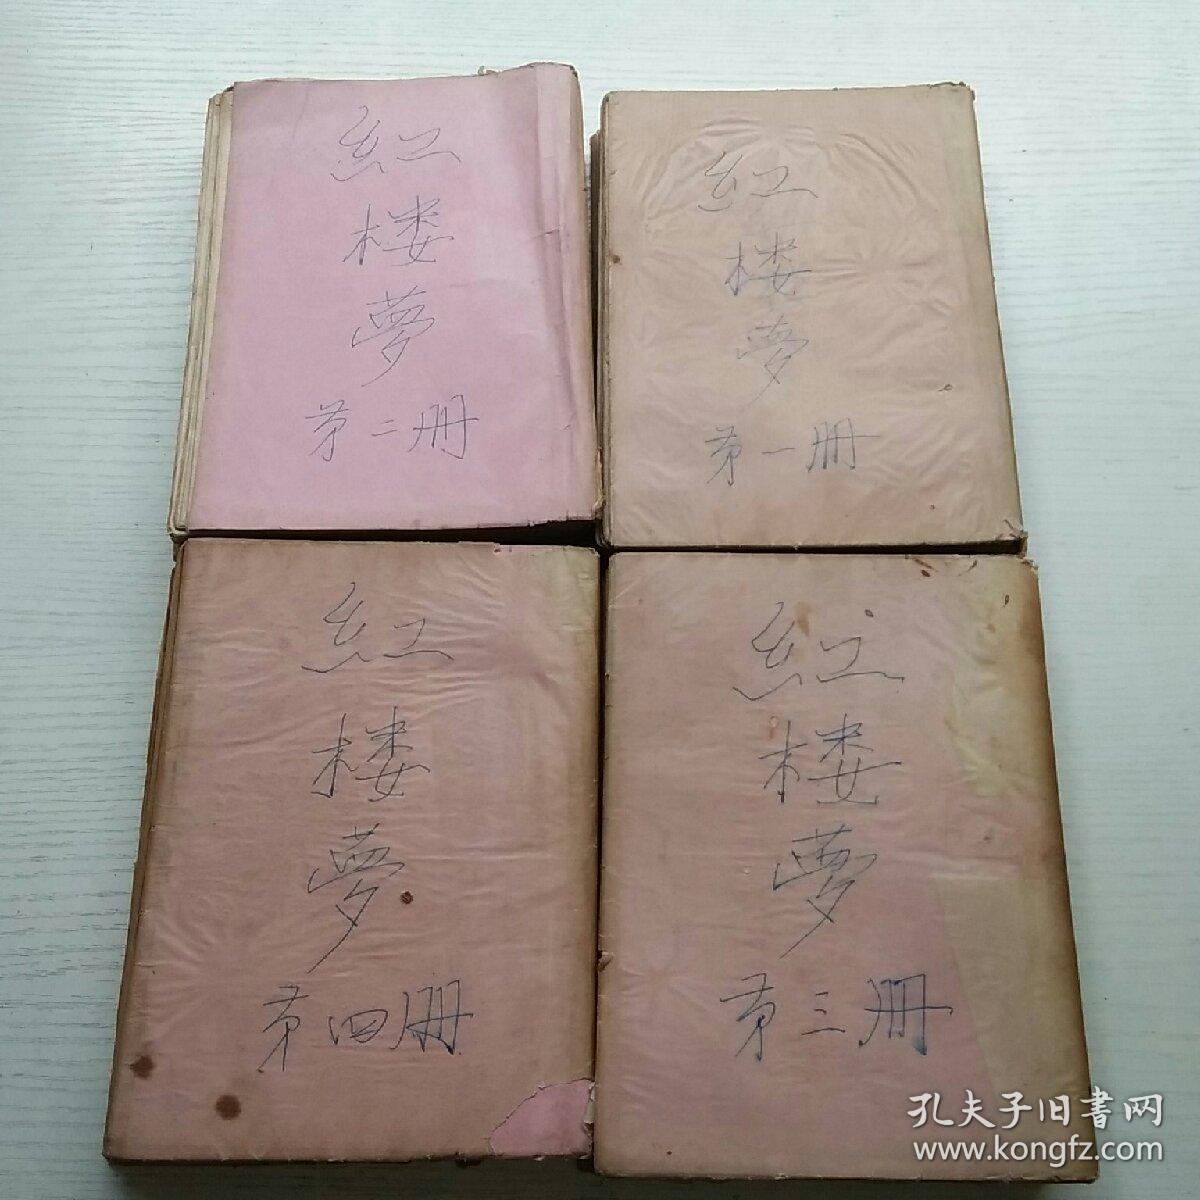 紅
楼
夢
第二册
紅
楼
夢
第一册
紅
楼
夢
第四册
紅
楼
夢
第三册
孔夫子旧書网
www.kongfz.com